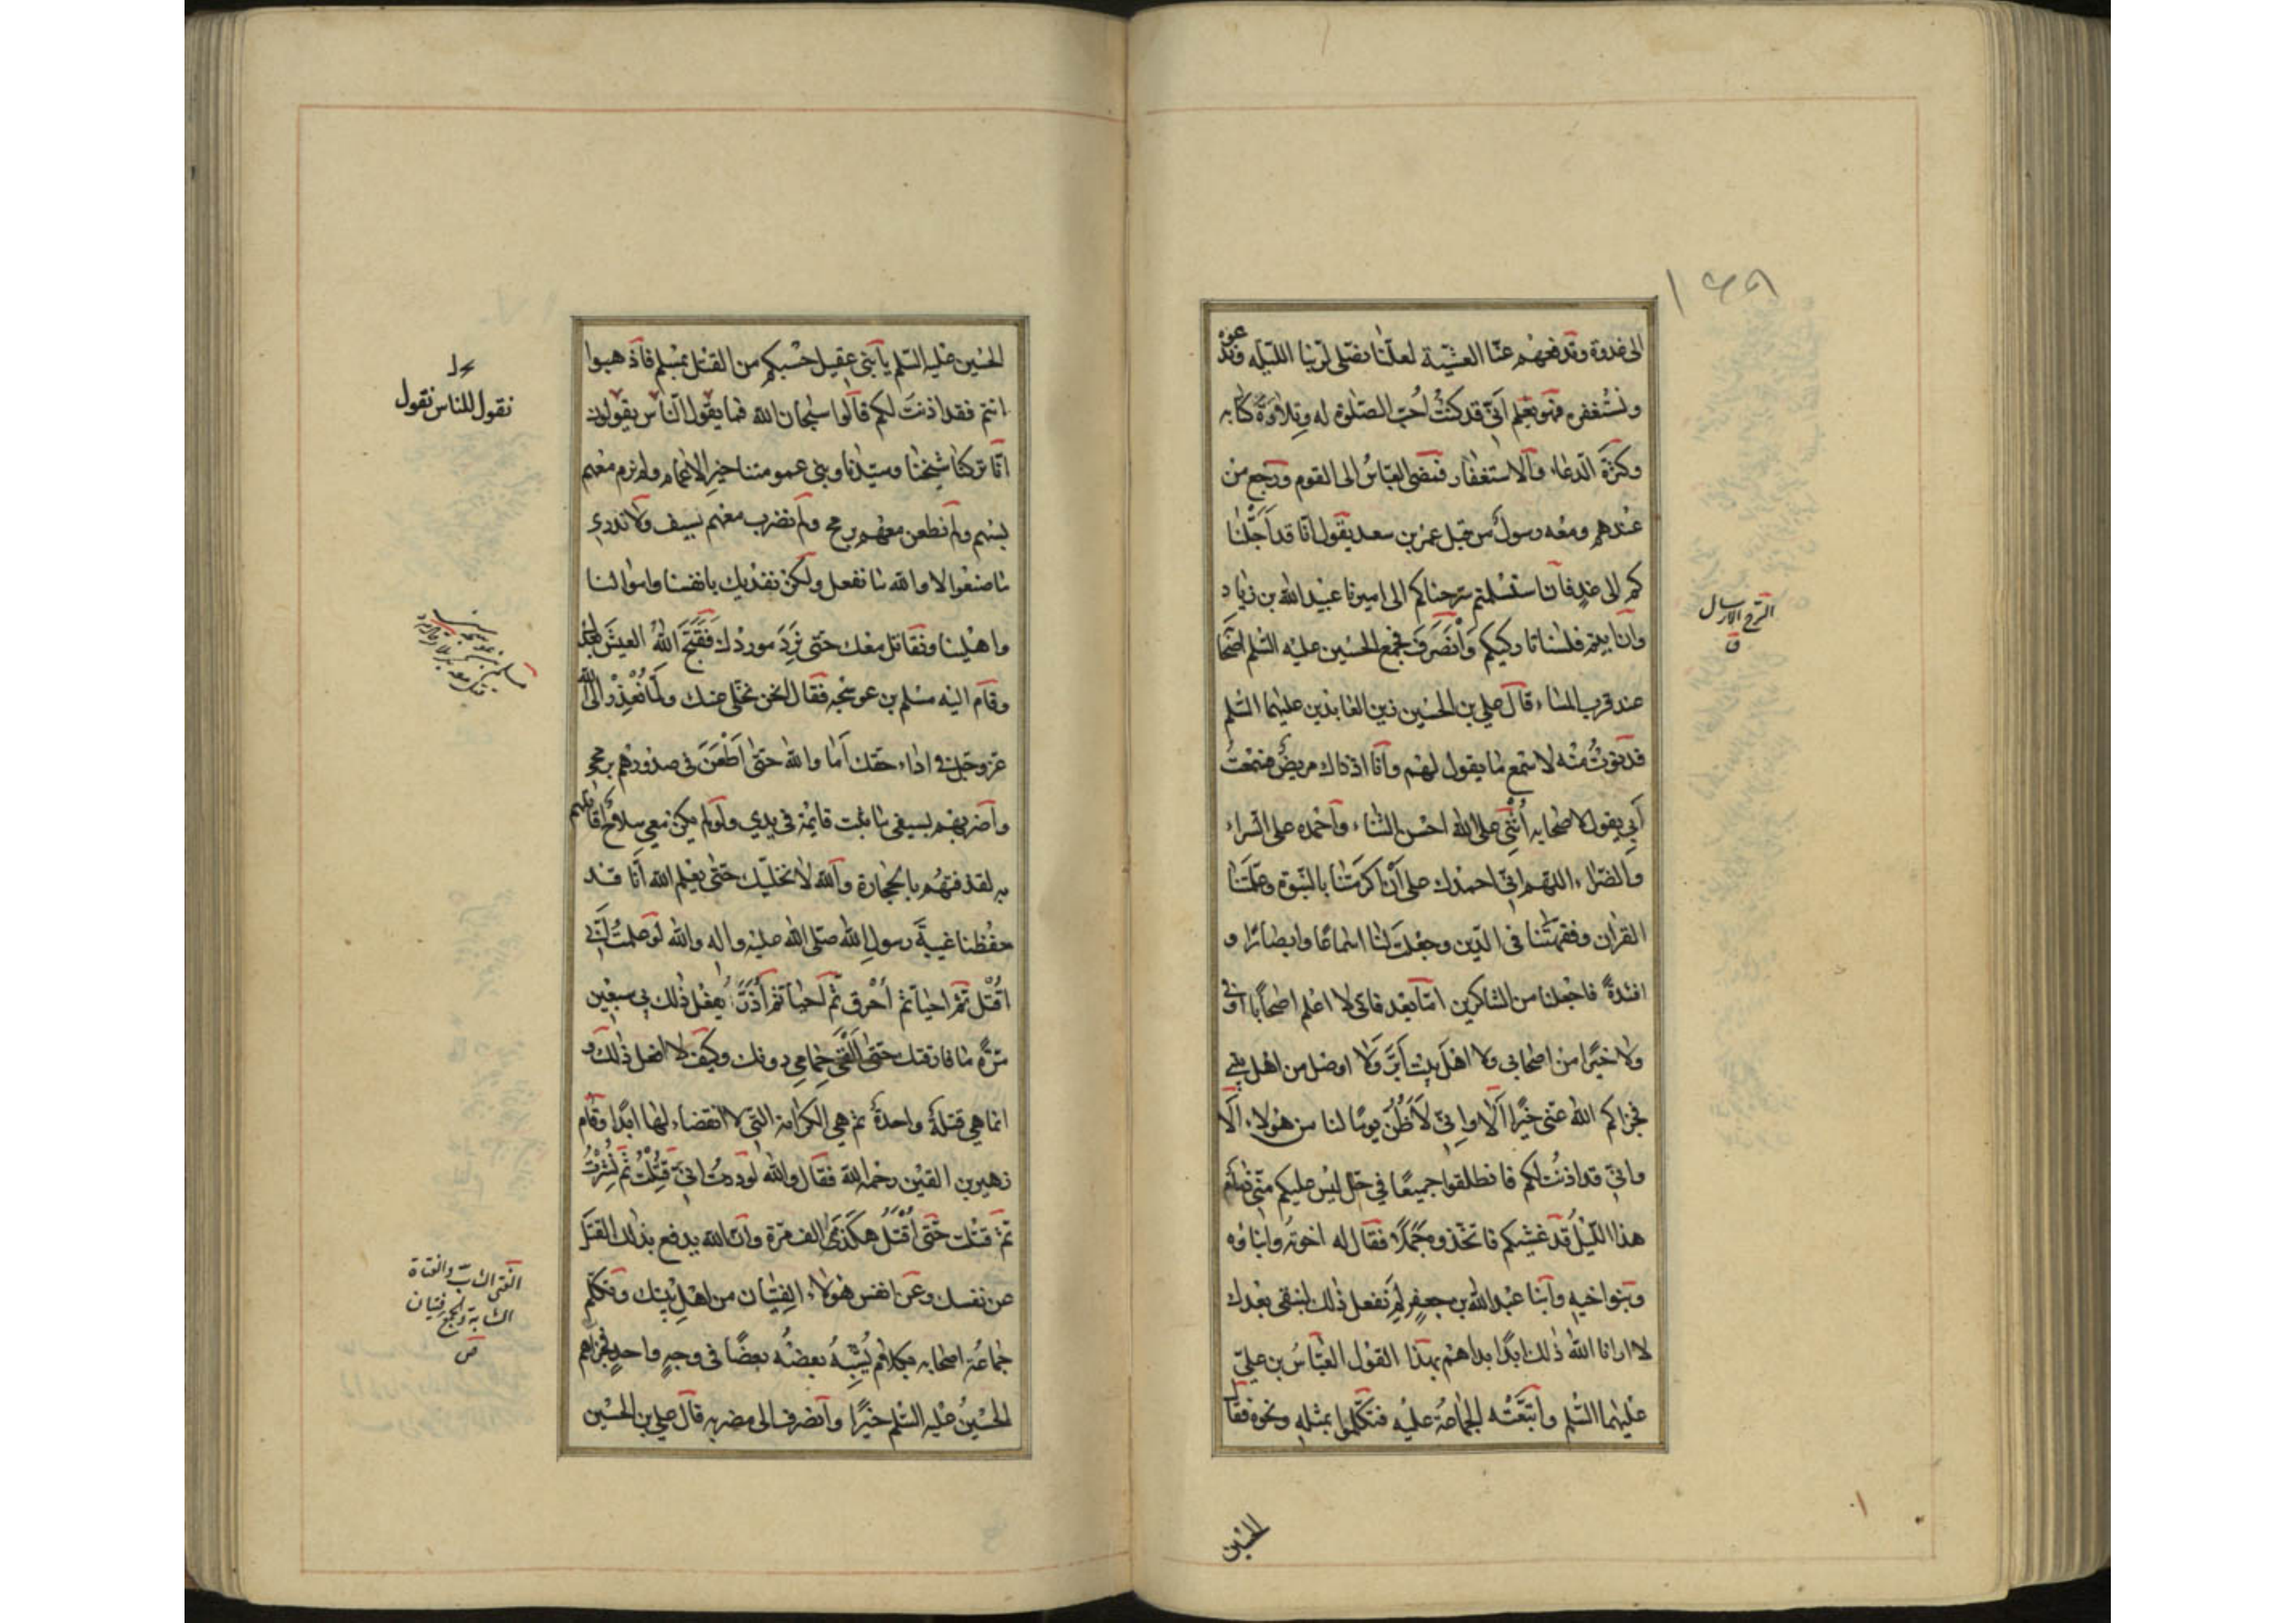 ١٦٩
الى غدوة وتدفعهم عنّا العشيّة لعلّنا نصلى لربنا الليلة وندعوه
ونستغفره فهو يعلم انى قد كنت اُحبّ الصّلوة له وتلاوة كتابه
وكثرة الدعاء والاستغفار فمضى العبّاسُ الى القوم ورجع من
عندهم ومعه رسولٌ من قبل عمر بن سعد يقول انا قد اَجّلنا
كم الى غدٍ فان استسلمتم سرحناكم الى اميرنا عبيد الله بن زياد
وان ابيتم فلسنا تاركيكم وَانْصَرَفَ فجمع الحسين عليه السّلم اصحابه
عند قرب المساء قال علي بن الحسين زين العابدين عليهما السّلم
فدنوتُ منه لاسمع ما يقول لهم وانا اذ ذاك مريضٌ فسمعت
اَبي يقول لاصحابه اُثْنِى على الله احسن الثناء واحمده على السراء
والضراء اللّهم انّى احمدك على اَنْ اكرمتنا بالنّبوة وعلّمتنا
القران وفقهتنا فى الدّين وجعلتَ لنا اسماعًا وابصارًا و
افئدةً فاجعلنا من الشاكرين امّا بعد فانى لا اعلم اصحابًا اوفى
ولا خيرًا من اصحابى ولا اهل بيت اَبَرَّ ولا اوصل من اهل بيتى
فجزاكم الله عنّى خيرًا اَلَا وانّى لَاَظُنّ يومًا لنا من هؤلاء اَلَا
وانّى قد اذنتُ لكم فانطلقوا جميعًا في حلّ ليس عليكم منّى ذمام
هذا اللّيلُ قد غشيكم فاتخذوه جَمَلًا فقال له اخوته وابناؤه
وبنو اخيه وابنا عبد الله بن جعفر لِمَ نفعل ذلك لنبقى بعدك
لا ارانا الله ذلك ابدًا بداهم بهذا القول العبّاسُ بن عليّ
عليهما السّلم واتبَّعتْه الجماعة عليه فتكلّموا بمثله ونحوه فقال
الترح الارسال
ق
الحسين
الحسين عليه السّلم يا بنى عقيل حسبكم من القتل بمسلم فاذهبوا
انتم فقد اذنتَ لكم قالوا سبحان الله فما يقول النّاس يقولون
انّا تركنا شيخنا وسيّدنا وبنى عمومتنا خير الاعمام ولم نرم معهم
بسهم ولم نطعن معهم برمح ولم نضرب معهم بسيف ولا ندرى
ما صنعوا لا والله ما نفعل ولكن نفديك بانفسنا واموالنا
واهلينا ونقاتل معك حتى نَرِدَ موردك فَقَبَّحَ اللهُ العيشَ بعدك
وقام اليه مسلم بن عوسجه فقال انحن نخلّى عنك ولَمّا نُعْذِرْ الى الله
عز وجل فى اداء حقك اَمَا والله حتى اَطْعَنَ فى صدورهم برمحى
واضربهم بسيفى ما ثبت قايمه فى يدي ولو لم يكن معي سلاح اقاتلهم
به لقذفتهم بالحجارة والله لا نخليك حتى يعلم الله انّا قد
حفظنا غيبةَ رسول الله صلى الله عليه واله والله لو علمتُ انّى
اُقْتَل ثم احيا ثم اُحْرق ثم احيا ثم اُذَرّى يفعل ذلك بى سبعين
مرّة ما فارقتك حتى القى حِمامي دونك وكيف لا افعل ذلك و
انما هي قتلةٌ واحدةٌ ثم هي الكرامة التى لا انقضاء لها ابدًا وقام
زهير بن القين رحمه الله فقال والله لوددتُ انى قُتِلْتُ ثم نُشِرْتُ
ثم قتلت حتى اُقْتَلُ هكذى الف مرّة وان الله يدفع بذلك القتل
عن نفسك وعن انفس هؤلاء الفتيان من اهل بيتك وتكلّم
جماعة اصحابه بكلام يُشْبِهُ بعضُه بعضًا فى وجهٍ واحدٍ فجزاهم
الحسينُ عليه السّلم خيرًا وانصرف الى مضربه قال على بن الحسين
نقول للناس نقول
الفتى الشابّ والفتاة
الشابة والجمع فتيان
ص